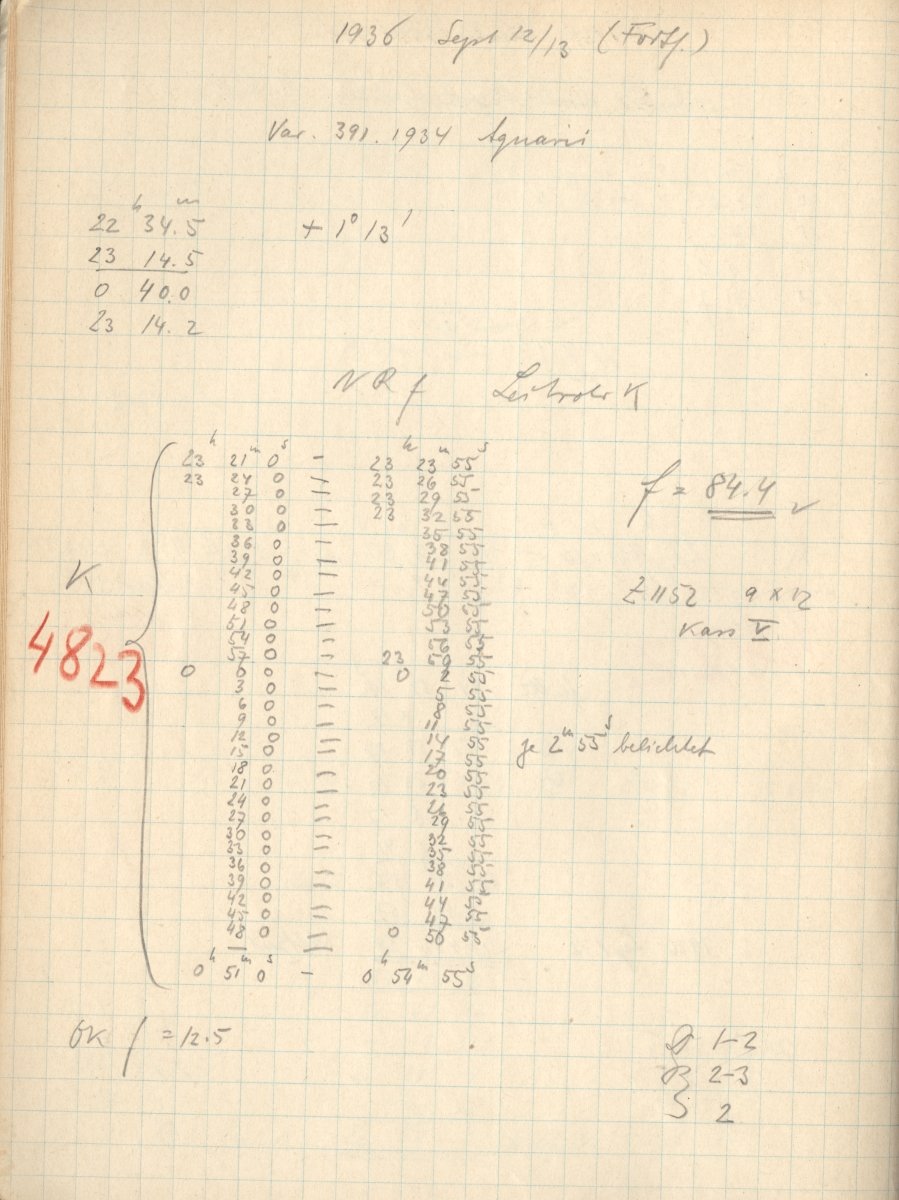 1936 Sept 12/13 (Forts.)
Var. 391.1934 Aquarii
22ʰ 34.5ᵐ + 1° 13'
23 14.5
0 40.0
23 14.2
N R f Leitrohr K
23ʰ 21ᵐ 0ˢ - 23ʰ 23ᵐ 55ˢ
23 24 0 23 26 55
27 0 23 29 55
30 0 23 32 55
33 0 35 55
36 0 38 55
39 0 41 55
42 0 44 55
45 0 47 55
48 0 50 55
51 0 53 55
54 0 56 55
57 0 23 59 55
0 0 0 0 2 55
3 0 5 55
6 0 8 55
9 0 11 55
12 0 14 55
15 0 17 55
18 0 20 55
21 0 23 55
24 0 26 55
27 0 29 55
30 0 32 55
33 0 35 55
36 0 38 55
39 0 41 55
42 0 44 55
45 0 47 55
48 0 0 50 55
0ʰ 51ᵐ 0ˢ - 0ʰ 54ᵐ 55ˢ
K
4823
f = 84.4 ✓
Z 1152 9 x 12
Kass V
je 2ᵐ 55ˢ belichtet
OK f = 12.5
1-2
2-3
S 2